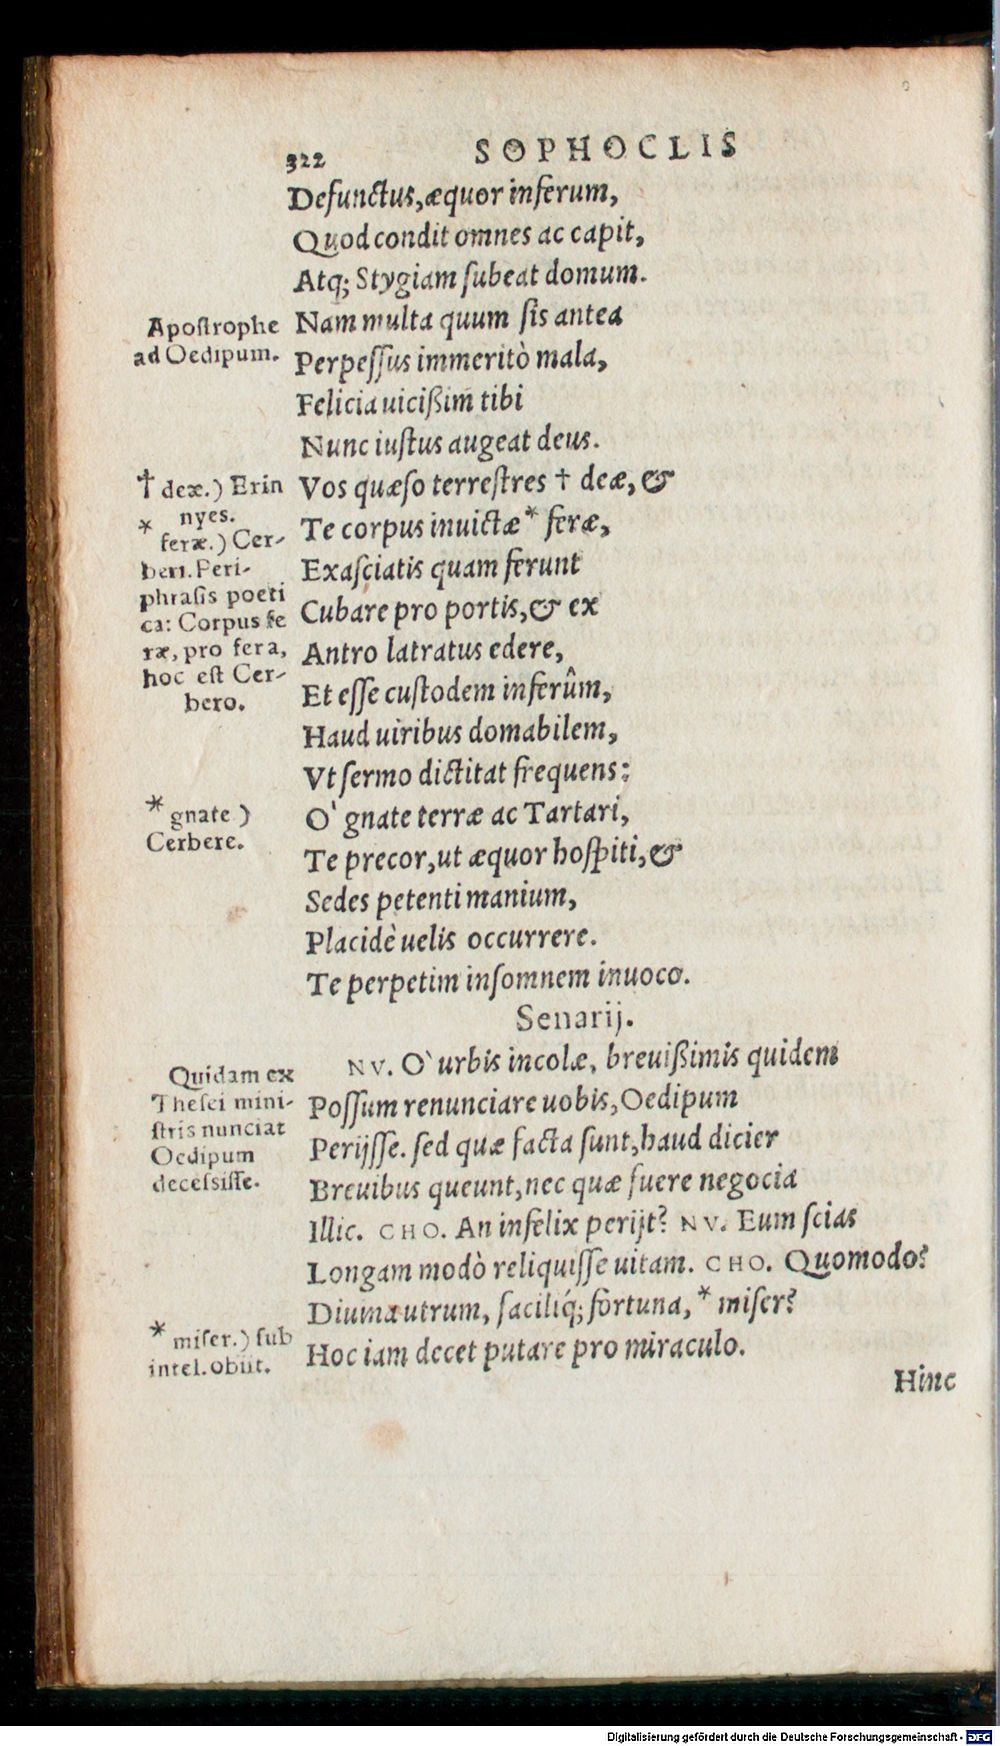 322 SOPHOCLIS
Defunctus,æquor inferum,
Quod condit omnes ac capit,
Atq; Stygiam ſubeat domum.
Apoſtrophe
ad Oedipum.
Nam multa quum ſis antea
Perpeſſus immeritò mala,
Felicia uicißim tibi
Nunc iuſtus augeat deus.
† deæ.) Erin
nyes.
* feræ.) Cer-
beri. Peri-
phraſis poeti
ca: Corpus fe
ræ, pro fera,
hoc eſt Cer-
bero.
Vos quæſo terreſtres † deæ, &
Te corpus inuictæ * feræ,
Exaſciatis quam ferunt
Cubare pro portis, & ex
Antro latratus edere,
Et eſſe cuſtodem inferûm,
Haud uiribus domabilem,
Vt ſermo dictitat frequens:
* gnate )
Cerbere.
O` gnate terræ ac Tartari,
Te precor, ut æquor hoſpiti, &
Sedes petenti manium,
Placidè uelis occurrere.
Te perpetim inſomnem inuoco.
Senarij.
Quidam ex
Theſei mini-
ſtris nunciat
Oedipum
deceſsiſſe.
NV. O` urbis incolæ, breuißimis quidem
Poſſum renunciare uobis, Oedipum
Perijſſe. ſed quæ facta ſunt, haud dicier
Breuibus queunt, nec quæ fuere negocia
Illic. CHO. An infelix perijt? NV. Eum ſcias
Longam modò reliquiſſe uitam. CHO. Quomodo?
Diuina utrum, faciliq́; fortuna, * miſer?
* miſer.) ſub
intel. obiit.
Hoc iam decet putare pro miraculo.
Hinc
Digitalisierung gefördert durch die Deutsche Forschungsgemeinschaft - DFG